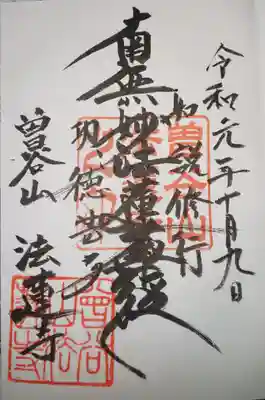 令和元年十月九日
如説修行
南無妙法蓮華経
現徳岩多
曽谷山 法蓮寺
曽谷山